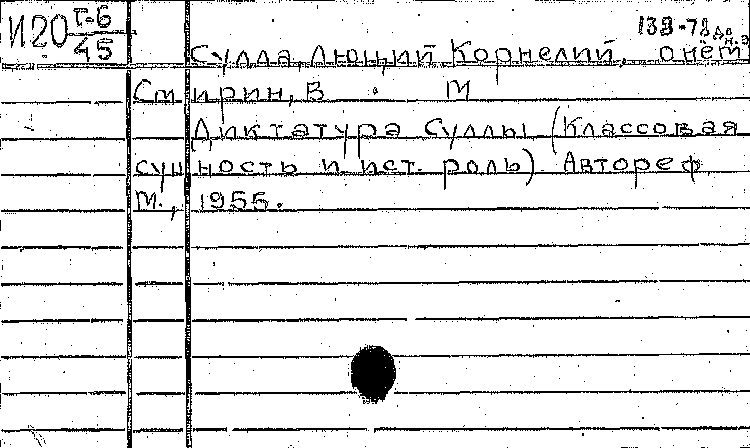 И20 Г-6/45
Сулла, Люций Корнелий, о нем
Смирин, В. М
Диктатура Суллы (Классовая
сущность и ист. роль) Автореф.
М., 1955.